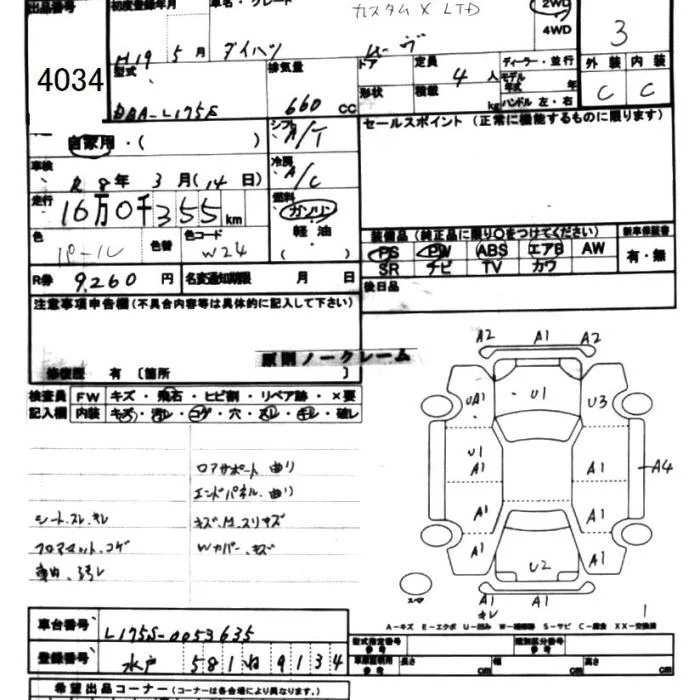 出品番号 初度登録年月 車名・グレード カスタム X LTD 2WD
4WD
H19 5月 ダイハツ ムーヴ 3
4034
型式 排気量 ドア 定員 4人 ディーラー・並行 外装 内装
DBA-L175S 660 CC 形状 積載 kg モデル年式 年 ハンドル 左・右 C C
自家用・( ) シフト A/T セールスポイント (正常に機能するものに限ります)
車検 R8年 3月(14日) 冷房 A/C
走行 16万0千355km 燃料 ガソリン
軽油
( )
色 パール 色替 色コード W24
装備品 (純正品に限り○をつけてください) 新車保証書
PS PW ABS エアB AW 有・無
SR ナビ TV カワ
R券 9,260円 名変通知期限 月 日 後日品
注意事項申告欄(不具合内容等は具体的に記入して下さい)
原則ノークレーム
修復歴 有 〔箇所 〕
検査員 FW キズ・飛石・ヒビ割・リペア跡・×要
記入欄 内装 キズ・汚レ・コゲ・穴・スレ・キレ・破レ
ロアサポート 曲り
エンドパネル 曲り
シートスレ.キレ キズ.M.スリキズ
フロアマット.コゲ Wカバー.キズ
車内.汚レ
A2 A1 A2
UA1 U1 U3
U1
A1 A1 A4
A1 A1
A1 U2 A1
A1 A1
キレ
スペア
1
A-キズ E-エクボ U-凹み W-補修跡 S-サビ C-腐食 XX-交換済
車台番号 L175S-0053635
登録番号 水戸 581 ね 9134
型式指定番号 参考 類別区分番号 参考
車庫証明用 参考 長さ cm 幅 cm 高さ cm
希望出品コーナー(コーナーは各会場により異なります。)